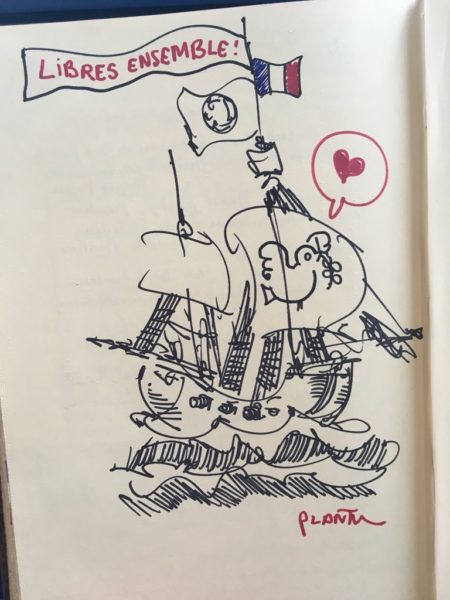 LiBRES ENSEMBLE!
PLANTU